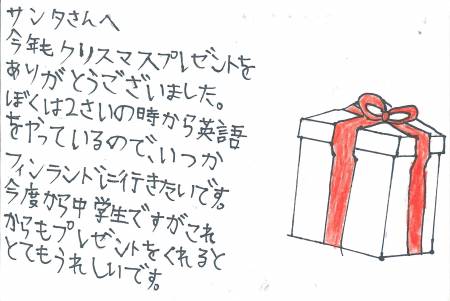 サンタさんへ
今年もクリスマスプレゼントを
ありがとうございました。
ぼくは2さいの時から英語
をやっているので、いつか
フィンランドに行きたいです。
今度から中学生ですがこれ
からもプレゼントをくれると
とてもうれしいです。